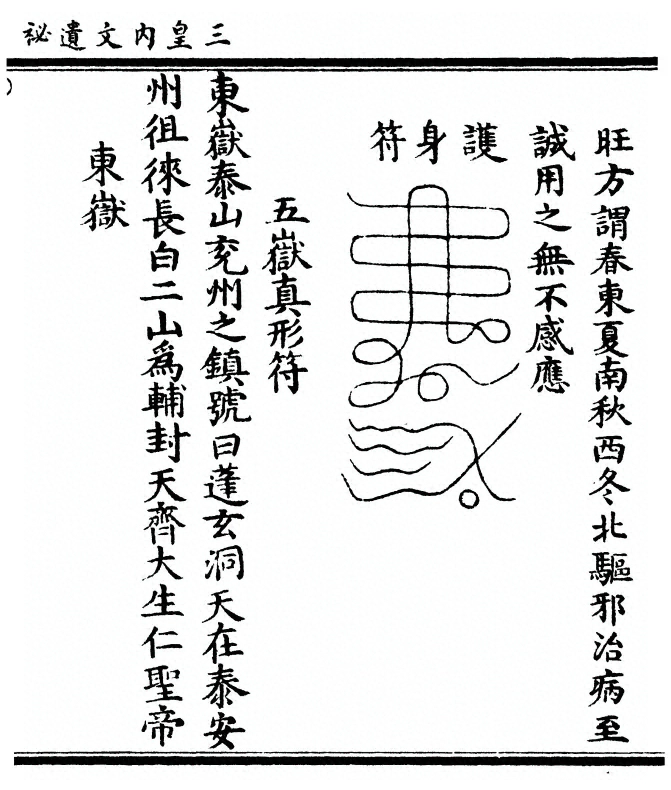 三皇內文遺祕
旺方謂春東夏南秋西冬北驅邪治病至
誠用之無不感應
護身符
五嶽真形符
東嶽泰山兖州之鎮號曰蓬玄洞天在泰安
州徂徠長白二山爲輔封天齊大生仁聖帝
東嶽